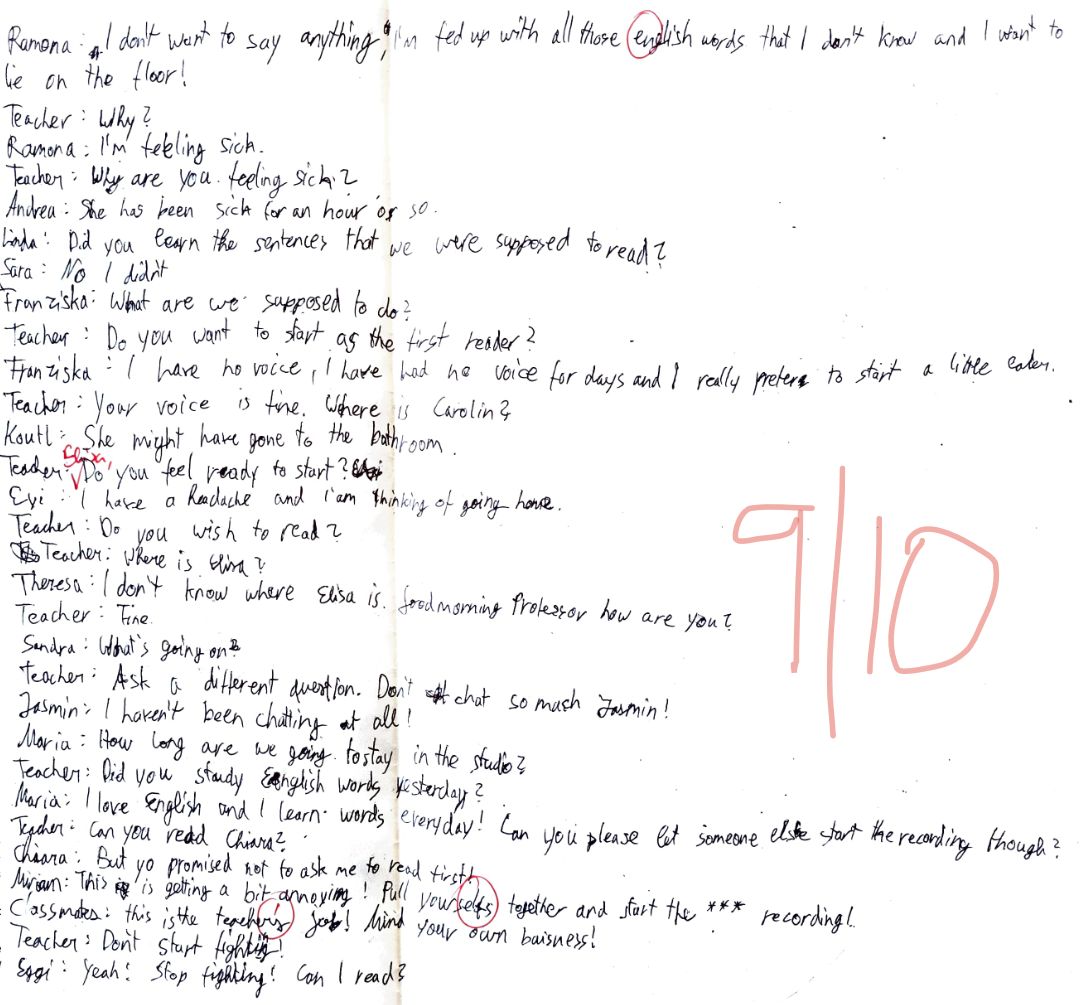 Ramona : I don't want to say anything, I'm fed up with all those english words that I don't know and I want to
lie on the floor!
Teacher : Why?
Ramona : I'm feeling sick.
Teacher : Why are you feeling sick?
Andrea : She has been sick for an hour or so.
Linda : Did you learn the sentences that we were supposed to read?
Sara : No I didn't
Franziska : What are we supposed to do?
Teacher : Do you want to start as the first reader?
Franziska : I have no voice, I have had no voice for days and I really prefer to start a little later.
Teacher : Your voice is fine. Where is Carolin?
Koutl : She might have gone to the bathroom.
Teacher : Do you feel ready to start?
Evi : I have a headache and I'am thinking of going home.
Teacher : Do you wish to read?
Teacher : Where is Elisa?
Theresa : I don't know where Elisa is. Goodmorning Professor how are you?
Teacher : Fine.
Sandra : What's going on?
Teacher : Ask a different question. Don't chat so much Jasmin!
Jasmin : I haven't been chatting at all!
Maria : How long are we going to stay in the studio?
Teacher : Did you study English words yesterday?
Maria : I love English and I learn words everyday! Can you please let someone else start the recording though?
Teacher : Can you read Chiara?
Chiara : But yo promised not to ask me to read first!
Miriam : This is getting a bit annoying! Pull yourselfs together and start the *** recording!
Classmates : this is the teacher's job! Mind your own baisness!
Teacher : Don't start fighting!
: Yeah! Stop fighting! Can I read?
9/10